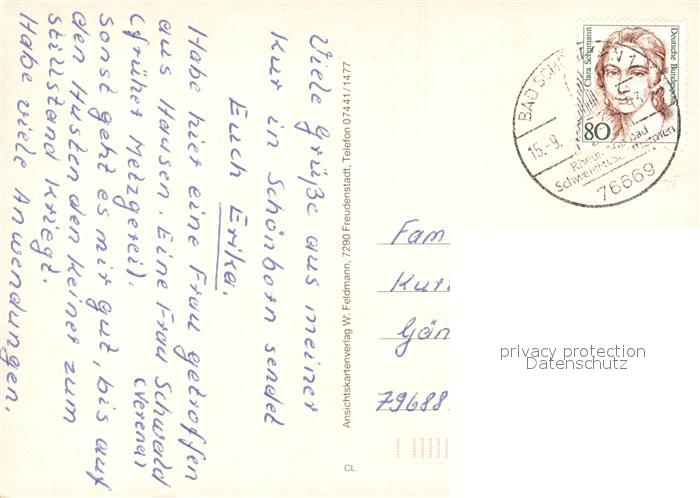 Viele Grüße aus meiner
Kur in Schönborn sendet
Euch Erika.
Habe hier eine Frau getroffen
aus Hausen. Eine Frau Schwald
(früher Metzgerei). (Verena)
Sonst geht es mir gut, bis auf
den Husten den keiner zum
Stillstand kriegt.
Habe viele Anwendungen.
Ansichtskartenverlag W. Feldmann, 7290 Freudenstadt, Telefon 07441/1477
CL
Clara Schumann
Deutsche Bundespost
80
BAD SCHÖ
15.-9.
76669
Fam
Kur
Gän
79688
privacy protection
Datenschutz